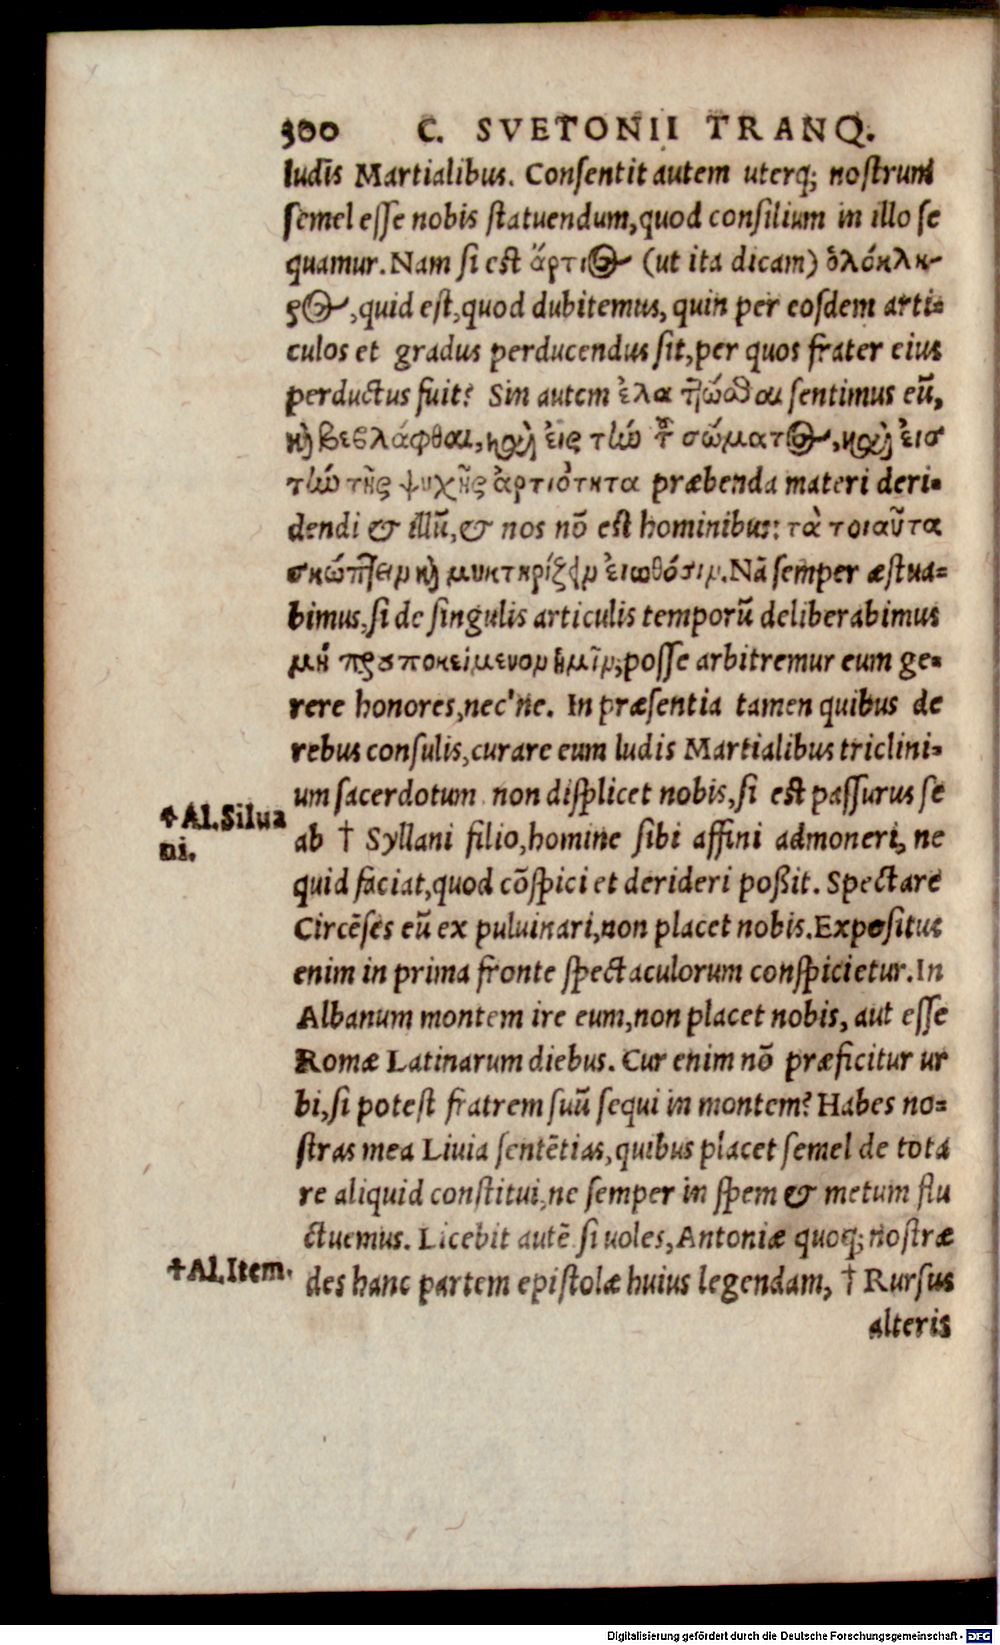 300 C. SVETONII TRANQ.
ludis Martialibus. Consentit autem uterq; nostrum
semel esse nobis statuendum, quod consilium in illo se
quamur. Nam si est ἄρτιος (ut ita dicam) ὁλόκλη-
ρος, quid est, quod dubitemus, quin per eosdem arti-
culos et gradus perducendus sit, per quos frater eius
perductus fuit? Sin autem ἐλαττῶσθαι sentimus eū,
καὶ βεβλάφθαι, καὶ εἰς τὴν τοῦ σώματος, καὶ εἰσ
τὴν τῆς ψυχῆς ἀρτιότητα præbenda materi deri-
dendi & illū, & nos nō est hominibus: τὰ τοιαῦτα
σκώπτειν καὶ μυκτηρίζειν εἰωθόσιν. Nā semper æstua-
bimus, si de singulis articulis temporū deliberabimus
μὴ προποκείμενον ἡμῖν, posse arbitremur eum ge-
rere honores, nec'ne. In præsentia tamen quibus de
rebus consulis, curare eum ludis Martialibus triclini-
um sacerdotum non displicet nobis, si est passurus se
✝Al. Silua
ni.
ab † Syllani filio, homine sibi affini admoneri, ne
quid faciat, quod cōspici et derideri poßit. Spectare
Circēses eū ex puluinari, non placet nobis. Expositus
enim in prima fronte spectaculorum conspicietur. In
Albanum montem ire eum, non placet nobis, aut esse
Romæ Latinarum diebus. Cur enim nō præficitur ur
bi, si potest fratrem suū sequi in montem? Habes no-
stras mea Liuia sentētias, quibus placet semel de tota
re aliquid constitui, ne semper in spem & metum flu
ctuemus. Licebit autē si uoles, Antoniæ quoq; nostræ
✝Al. Item.
des hanc partem epistolæ huius legendam, † Rursus
alteris
Digitalisierung gefördert durch die Deutsche Forschungsgemeinschaft - DFG